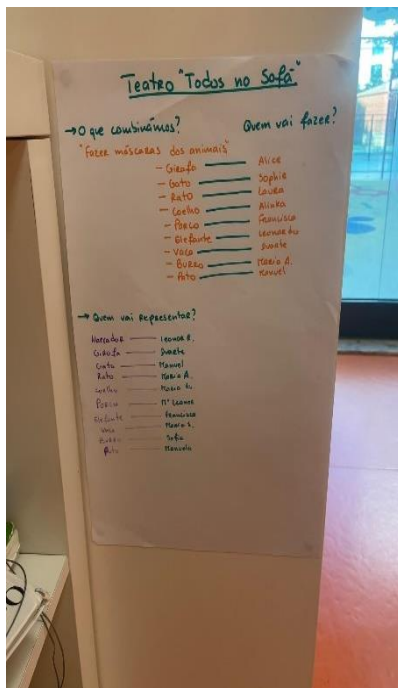 Teatro "Todos no Sofá"
→ O que combinámos? Quem vai fazer?
"Fazer máscaras dos animais"
- Girafa — Alice
- Gato — Sophie
- Rato — Laura
- Coelho — Alinka
- Porco — Francisco
- Elefante — Leonardo
- Vaca — Duarte
- Burro — Maria A.
- Pato — Manuel
→ Quem vai Representar?
Narrador — Leonor R.
Girafa — Duarte
Gato — Manuel
Rato — Maria A.
Coelho — Maria
Porco — Mª Leonor
Elefante — Francisco
Vaca — Maria S.
Burro — Sofia
Pato — Manuela